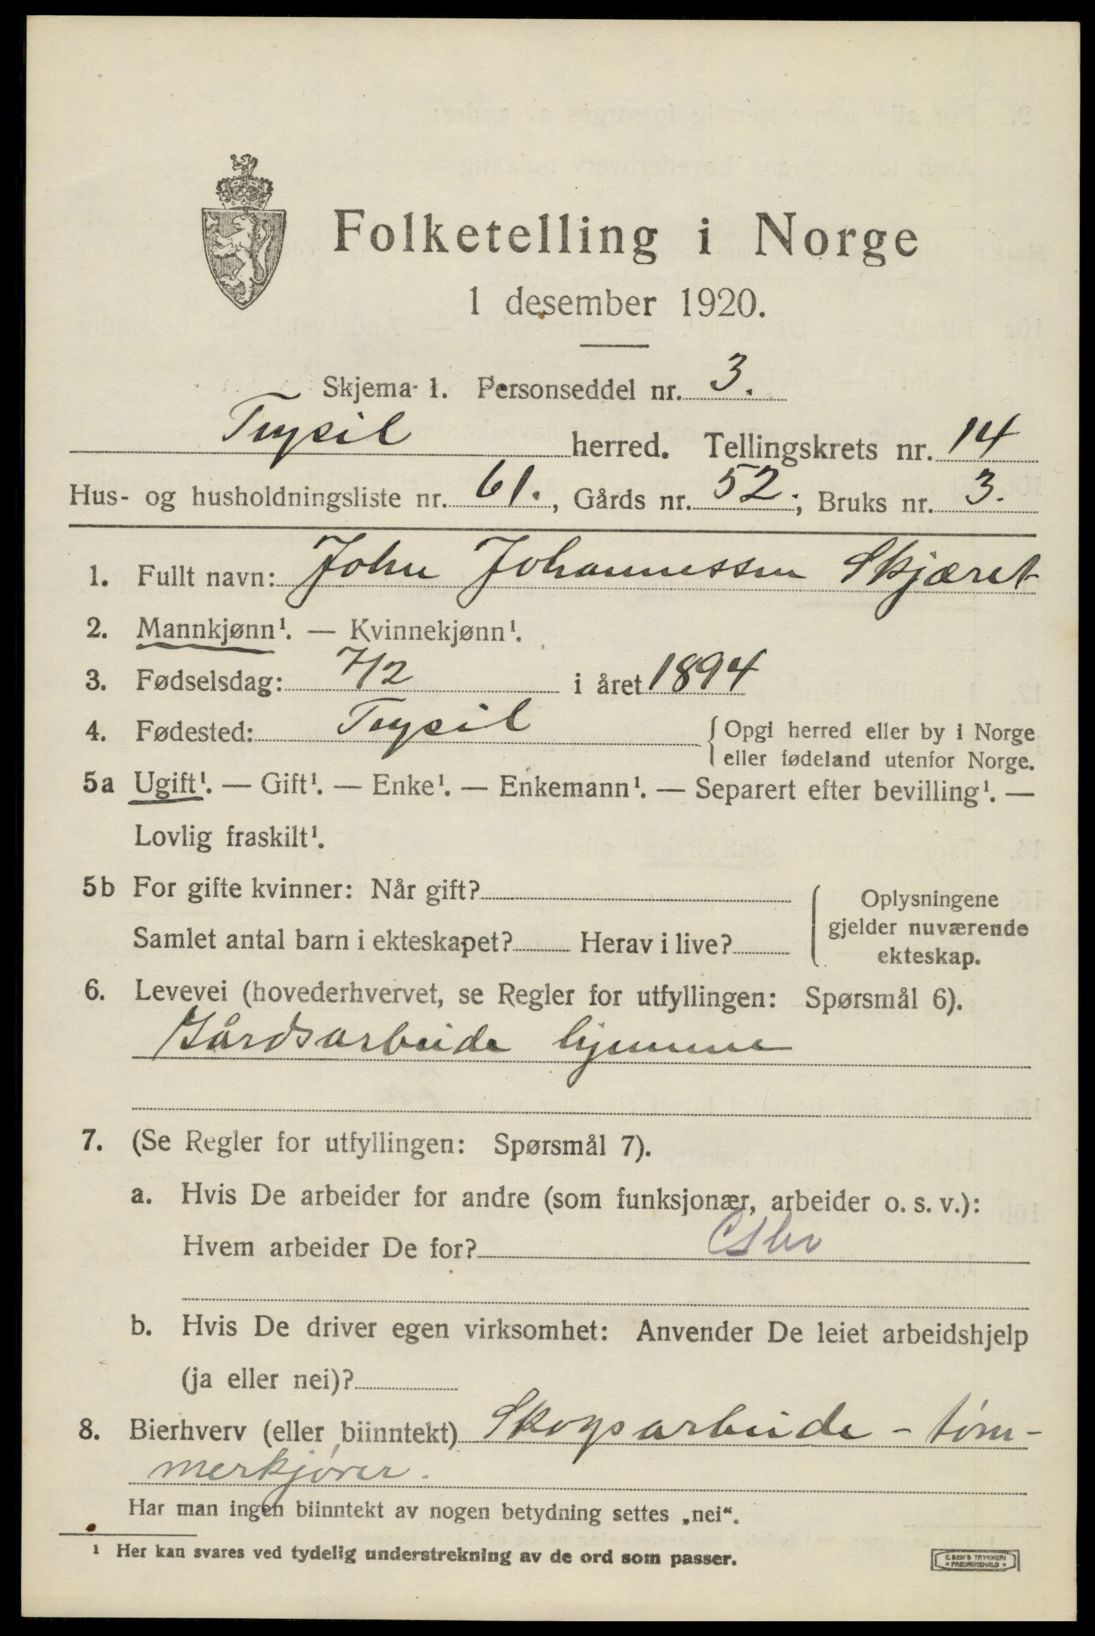 Folketelling i Norge
1 desember 1920.
Skjema 1. Personseddel nr. 3.
Trysil herred. Tellingskrets nr. 14
Hus- og husholdningsliste nr. 61., Gårds nr. 52.; Bruks nr. 3.
1. Fullt navn: John Johannessen Skjæret
2. Mannkjønn¹. — Kvinnekjønn¹.
3. Fødselsdag: 7/2 i året 1894
4. Fødested: Trysil {Opgi herred eller by i Norge
eller fødeland utenfor Norge.
5a Ugift¹. — Gift¹. — Enke¹. — Enkemann¹. — Separert efter bevilling¹. —
Lovlig fraskilt¹.
5b For gifte kvinner: Når gift?
Samlet antal barn i ekteskapet? Herav i live?
{Oplysningene
gjelder nuværende
ekteskap.
6. Levevei (hovederhvervet, se Regler for utfyllingen: Spørsmål 6).
Gårdsarbeide hjemme
7. (Se Regler for utfyllingen: Spørsmål 7).
a. Hvis De arbeider for andre (som funksjonær, arbeider o. s. v.):
Hvem arbeider De for?
b. Hvis De driver egen virksomhet: Anvender De leiet arbeidshjelp
(ja eller nei)?
8. Bierhverv (eller biinntekt) Skogsarbeide - tøm-
merkjører.
Har man ingen biinntekt av nogen betydning settes „nei“.
¹ Her kan svares ved tydelig understrekning av de ord som passer.
E. SEM'S TRYKKERI
FREDRIKSHALD